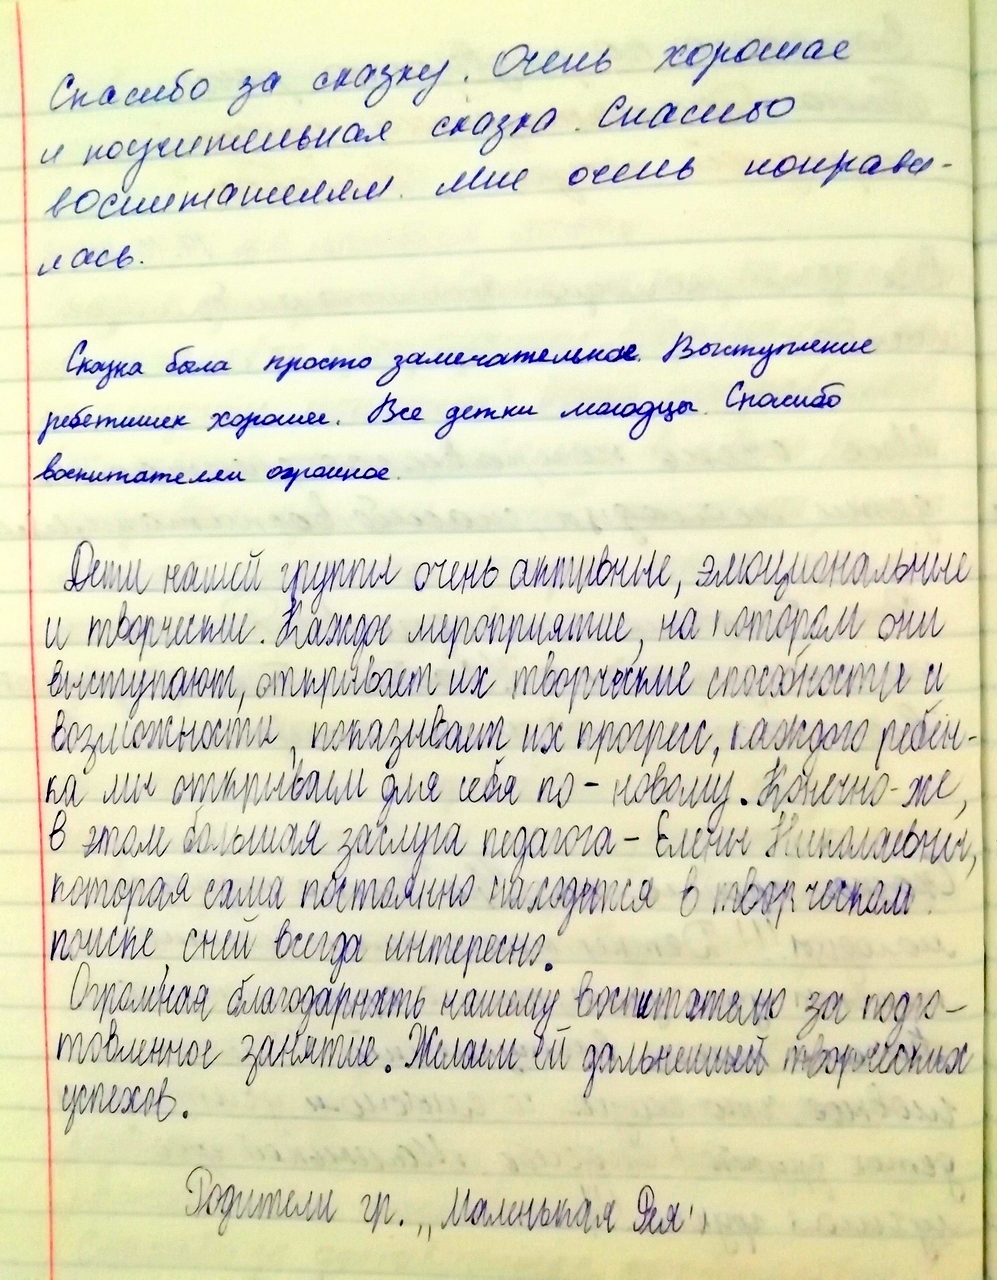 Спасибо за сказку. Очень хорошая
и поучительная сказка. Спасибо
воспитателям. Мне очень понрави-
лась.
Сказка была просто замечательное. Выступление
ребетишек хорошее. Все детки молодцы. Спасибо
воспитателям огромное.
Дети нашей группы очень активные, эмоциональные
и творческие. Каждое мероприятие, на котором они
выступают, открывает их творческие способности и
возможности, показывает их прогресс, каждого ребён-
ка мы открываем для себя по-новому. Конечно-же,
в этом большая заслуга педагога - Елены Николаевны,
которая сама постоянно находится в творческом
поиске, с ней всегда интересно.
Огромная благодарность нашему воспитателю за подго-
товленное занятие. Желаем ей дальнейшей творческих
успехов.
Родители гр. „Маленькая